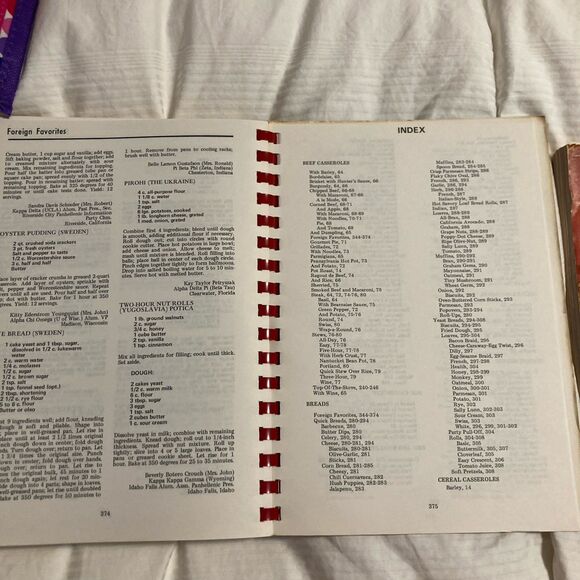 Foreign Favorites
Cream butter, 1 cup sugar and vanilla; add eggs.
Sift baking powder, salt and flour together; add
to creamed mixture alternately with sour
cream. Mix remaining ingredients for topping.
Pour half the batter into greased tube pan or
square cake pan; spread evenly with 1/2 of the
topping. Pour in remaining batter; spread with
remaining topping. Bake at 325 degrees for 40
minutes or until cake tests done. Yield: 12
servings.
Sandra Davis Schrader (Mrs. Robert)
Kappa Delta (UCLA) Alum. Past Pres., Sec.
Riverside City Panhellenic Information
Party Chm.
Riverside, California
OYSTER PUDDING (SWEDEN)
2 qt. crushed soda crackers
2 pt. fresh oysters
Salt and pepper to taste
1/2 c. Worcestershire sauce
1/2 c. butter
layer of cracker crumbs in greased 2-quart
Add layer of oysters, sprinkle with
pepper and Worcestershire sauce. Repeat
dot with butter. Bake for 1 hour at 350
degrees. Yield: 12 servings.
Kitty Edenstrom Youngquist (Mrs. John)
Alpha Chi Omega (U of Wisc.) Alum. VP
Madison, Wisconsin
BREAD (SWEDEN)
1 cake yeast and 1 tbsp. sugar,
dissolved in 1/2 c. lukewarm
water
2 c. warm water
1/4 c. molasses
1/2 c. sugar
c. brown sugar
2 tsp. salt
1 tsp. fennel seed (opt.)
2 tbsp. shortening
2 1/2 c. rye flour
5 to 6 c. flour
Butter or oleo
ingredients well; add flour, kneading
dough is soft and pliable. Shape into
well-greased pan. Let rise in
until at least 2 1/2 times original
dough down in center; fold dough
Turn dough over; return to pan. Let
2 1/4 times original size. Punch
in center; fold ends inward,
over; return to pan. Let
original bulk, 45 minutes to 1
dough again; let rest for 20
divide into 4 parts; shape in loaves.
well-greased pans; let double in
at 350 degrees for 50 minutes to
374
1 hour. Remove from pans to cooling racks;
brush well with butter.
Belle Larson Gustafson (Mrs. Ronald)
Pi Beta Phi (Zeta, Indiana)
Chesterton, Indiana
PIROHI (THE UKRAINE)
4 c. all-purpose flour
1 1/8 c. water
1 tsp. salt
2 eggs
6 lge. potatoes, cooked
1 lb. longhorn cheese, grated
1 med. onion, grated
Combine first 4 ingredients; blend until dough
is smooth, adding additional flour if necessary.
Roll dough out; cut into circles with round
cookie cutter. Place hot potatoes in large bowl;
add cheese and onion. Allow cheese to melt;
mash until mixture is blended. Roll filling into
balls; place ball in center of each dough circle.
Pinch edges together tightly to form halfmoons.
Drop into salted boiling water for 5 to 10
minutes. Serve hot with melted butter.
Kay Taylor Petrysyak
Alpha Delta Pi (Beta Tau)
Clearwater, Florida
TWO HOUR NUT ROLLS
(YUGOSLAVIA) POTICA
1 lb. ground walnuts
2 c. sugar
3/4 c. honey
1 cube butter
2 tsp. vanilla
1 tsp. cinnamon
2 eggs
Mix all ingredients for filling; cook until thick.
Set aside.
DOUGH:
2 cakes yeast
1/2 c. warm milk
6 c. flour
3 tbsp. sugar
3 eggs
1 tsp. salt
2 cubes butter
1 c. sour cream
Dissolve yeast in milk; combine with remaining
ingredients. Knead dough; roll out to 1/4-inch
thickness. Spread with nut mixture. Roll up
tightly; slice into 4 or 5 large loaves. Place in
pan or greased cookie sheet. Let rise for 1 hour.
Bake at 350 degrees for 25 to 35 minutes.
Beverly Botero Crouch (Mrs. John)
Kappa Kappa Gamma (Wyoming)
Idaho Falls Alum. Assn. Panhellenic Pres.
Idaho Falls, Idaho
INDEX
BEEF CASSEROLES
With Barley, 64
Bordelaise, 65
Brisket with Hunter's Sauce, 66
Burgundy, 64, 66
Chipped Beef, 66-68
With Macaroni, 67-68
A la Mode, 66
Corned Beef, 68-70
And Apple, 68
With Macaroni, 68
With Noodles, 68-69, 70
Pie, 68
And Tomato, 69
And Dumpling, 65
Foreign Favorites, 344-374
Gourmet Pie, 71
Grilladen, 72
With Noodles, 73
Parmigiana, 65
Pennsylvania Hot Pot, 73
And Potato, 73
Pot Roast, 74
Ragout de Beef, 74
And Rice, 74
Sherried, 75
Smoked Beef and Macaroni, 78
Steak, 64, 72, 74-76, 80
Basil, 64
With Bearnaise Sauce, 75
Green Pepper, 72
And Potato, 75-76
Round, 74
Swiss, 80
Wrap-n Round, 76
Stews, 76-79
All-Day, 76
Easy, 77-78
Five-Hour, 77-78
With Herb Crust, 77
Nantucket Pot Roast, 79
Portland, 80
Quick Stew Over Rice, 79
Three Hour, 79
Wine, 77
Top-Of-The-Stove, 240-246
With Wine, 65
BREADS
Foreign Favorites, 344-374
Quick Breads, 280-294
Barbecue, 286
Butter Dips, 280
Celery, 280, 294
Cheese, 280-281, 294
Biscuits, 280-281
Olive-Garlic, 281
Sticks, 281
Corn Bread, 281-285
Cheesy, 281
Chili Cuernavaca, 282
Hush Puppies, 282-283
Jalapeno, 283
Muffins, 283-284
Spoon Bread, 284-284
Crisp Parmesan Strips, 286
Flaky Olive Oval, 285
French, 286, 291
Garlic, 286, 294
Herb, 286-291
French, 287
Italian-Style, 286
Rye, 291
Hot Savory Loaf Bread Rolls, 287
Italian, 287
Loaves, 288-289
All-Bran, 288
California Avocado, 288
Graham, 288
Grape Nuts, 288-289
Poppy-Dot Cheese, 289
Ripe Olive-Nut, 289
Sally Lunn, 288
Tomato, 289
Muffins, 290, 292-293
Bran, 292-293
Graham Gems, 290
Mayonnaise, 291
Oatmeal, 291
Tiny Mushroom, 291
Wheat Germ, 292
Onion, 292
Biscuits, 292
Oven-Buttered Corn Sticks, 292
Parmesan, 293
Popovers, 293, 294
Roll-Ups, 280
Yeast Breads, 294-308
Biscuits, 294
Fried Dough, 295
Loaves, 295-303
Bacon Bread, 296
Cheese-Caraway-Egg Twist, 296
Dilly, 297
Egg-Sesame Braid, 297
French, 297
Health, 304
Honey, 298-299
Monkey, 299
Oatmeal, 300
Onion, 300-301
Parmesan, 301
Potato, 301
Rye, 303
Sally Lunn, 302-303
Sour Cream, 303
Swiss, 303
White, 296, 299, 301-302
Party Puff-Off, 304
Rolls, 304-308
Basic, 305
Buttermilk, 305, 307
Cloverleaf, 305
Easy Crescent, 306
Tomato Juice, 308
Soft Pretzels, 308
CEREAL CASSEROLES
Barley, 14
375